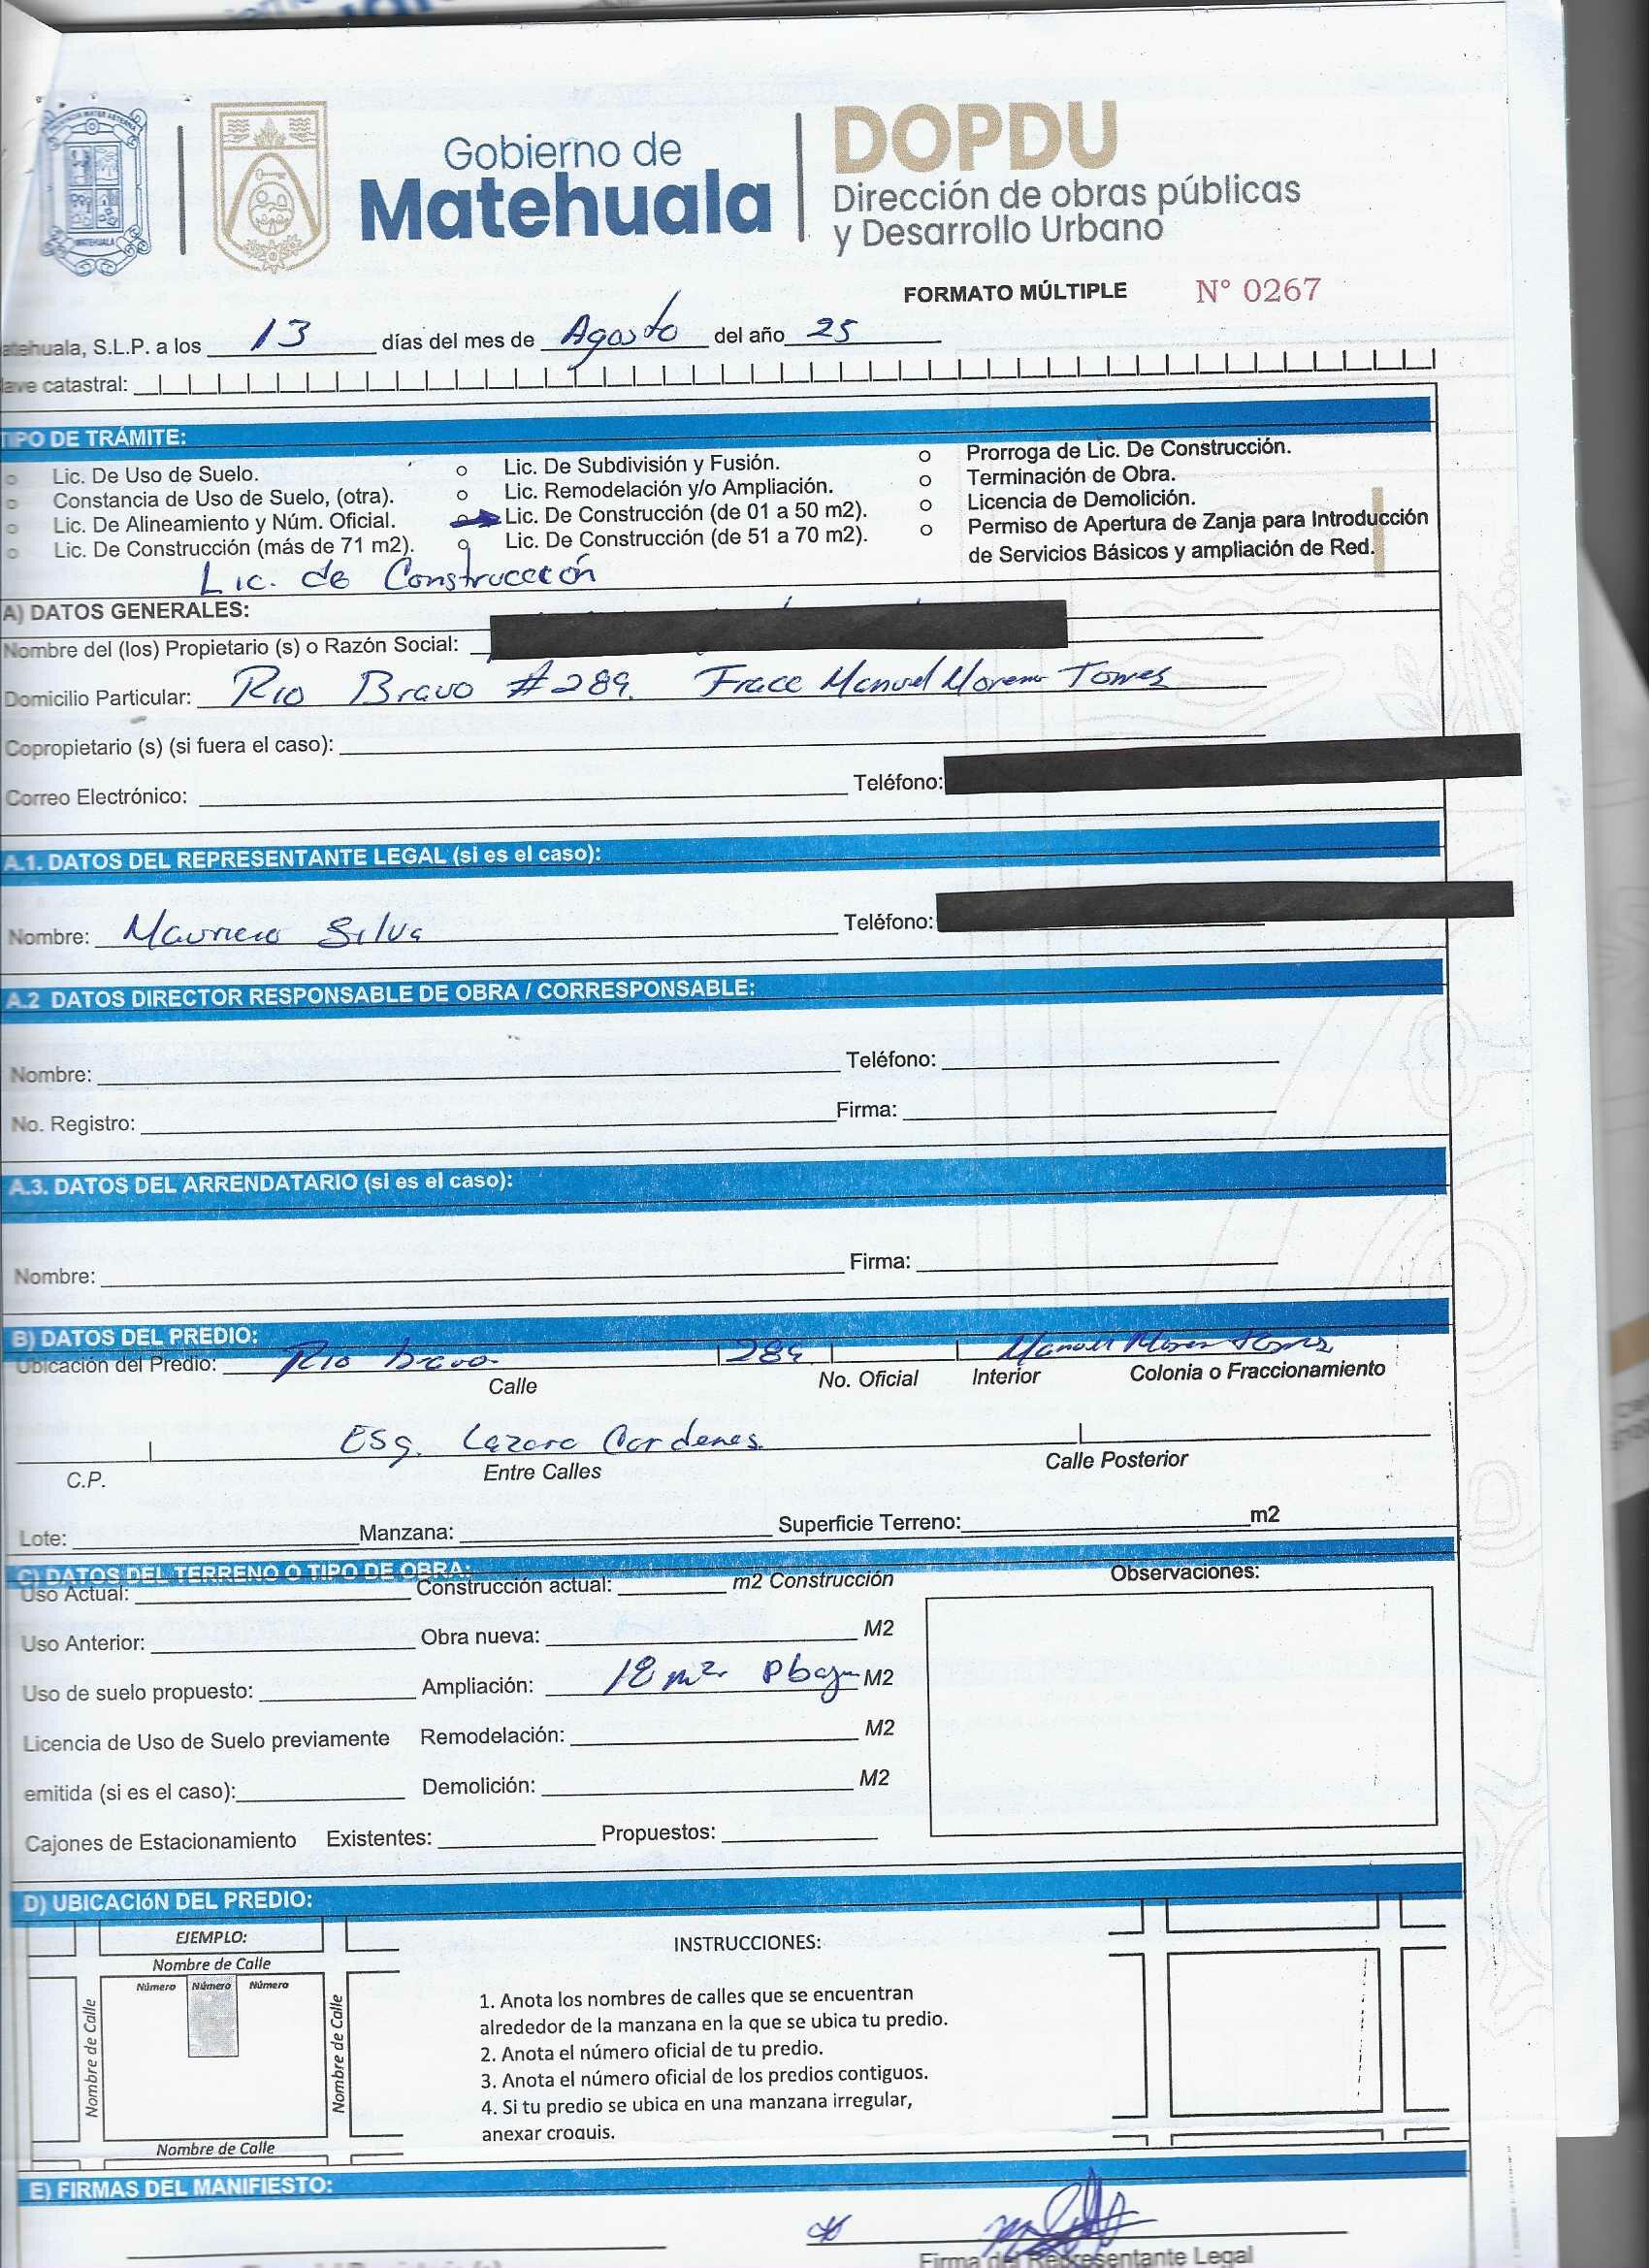 Gobierno de
Matehuala
DOPDU
Dirección de obras públicas
y Desarrollo Urbano
FORMATO MÚLTIPLE N° 0267
atehuala, S.L.P. a los 13 días del mes de Agosto del año 25
ave catastral:
TIPO DE TRÁMITE:
Lic. De Uso de Suelo.
Constancia de Uso de Suelo, (otra).
Lic. De Alineamiento y Núm. Oficial.
Lic. De Construcción (más de 71 m2).
Lic. De Subdivisión y Fusión.
Lic. Remodelación y/o Ampliación.
Lic. De Construcción (de 01 a 50 m2).
Lic. De Construcción (de 51 a 70 m2).
Prorroga de Lic. De Construcción.
Terminación de Obra.
Licencia de Demolición.
Permiso de Apertura de Zanja para Introducción
de Servicios Básicos y ampliación de Red.
Lic. de Construcción
A) DATOS GENERALES:
Nombre del (los) Propietario (s) o Razón Social:
Domicilio Particular: Rio Bravo #289. Fracc Manuel Moreno Torres
Copropietario (s) (si fuera el caso):
Correo Electrónico: Teléfono:
A.1. DATOS DEL REPRESENTANTE LEGAL (si es el caso):
Nombre: Mauricio Silva Teléfono:
A.2 DATOS DIRECTOR RESPONSABLE DE OBRA / CORRESPONSABLE:
Nombre: Teléfono:
No. Registro: Firma:
A.3. DATOS DEL ARRENDATARIO (si es el caso):
Nombre: Firma:
B) DATOS DEL PREDIO:
Ubicación del Predio: Rio bravo 289 Manuel Moreno Torres
Calle No. Oficial Interior Colonia o Fraccionamiento
Esq. Lazaro Cardenas
C.P. Entre Calles Calle Posterior
Lote: Manzana: Superficie Terreno: m2
C) DATOS DEL TERRENO O TIPO DE OBRA:
Uso Actual: Construcción actual: m2 Construcción Observaciones:
Uso Anterior: Obra nueva: M2
Uso de suelo propuesto: Ampliación: 18 m2 M2
Licencia de Uso de Suelo previamente Remodelación: M2
emitida (si es el caso): Demolición: M2
Cajones de Estacionamiento Existentes: Propuestos:
D) UBICACIóN DEL PREDIO:
EJEMPLO:
Nombre de Calle
Número Número Número
Nombre de Calle
Nombre de Calle
Nombre de Calle
INSTRUCCIONES:
1. Anota los nombres de calles que se encuentran
alrededor de la manzana en la que se ubica tu predio.
2. Anota el número oficial de tu predio.
3. Anota el número oficial de los predios contiguos.
4. Si tu predio se ubica en una manzana irregular,
anexar croquis.
E) FIRMAS DEL MANIFIESTO:
Firma del Representante Legal